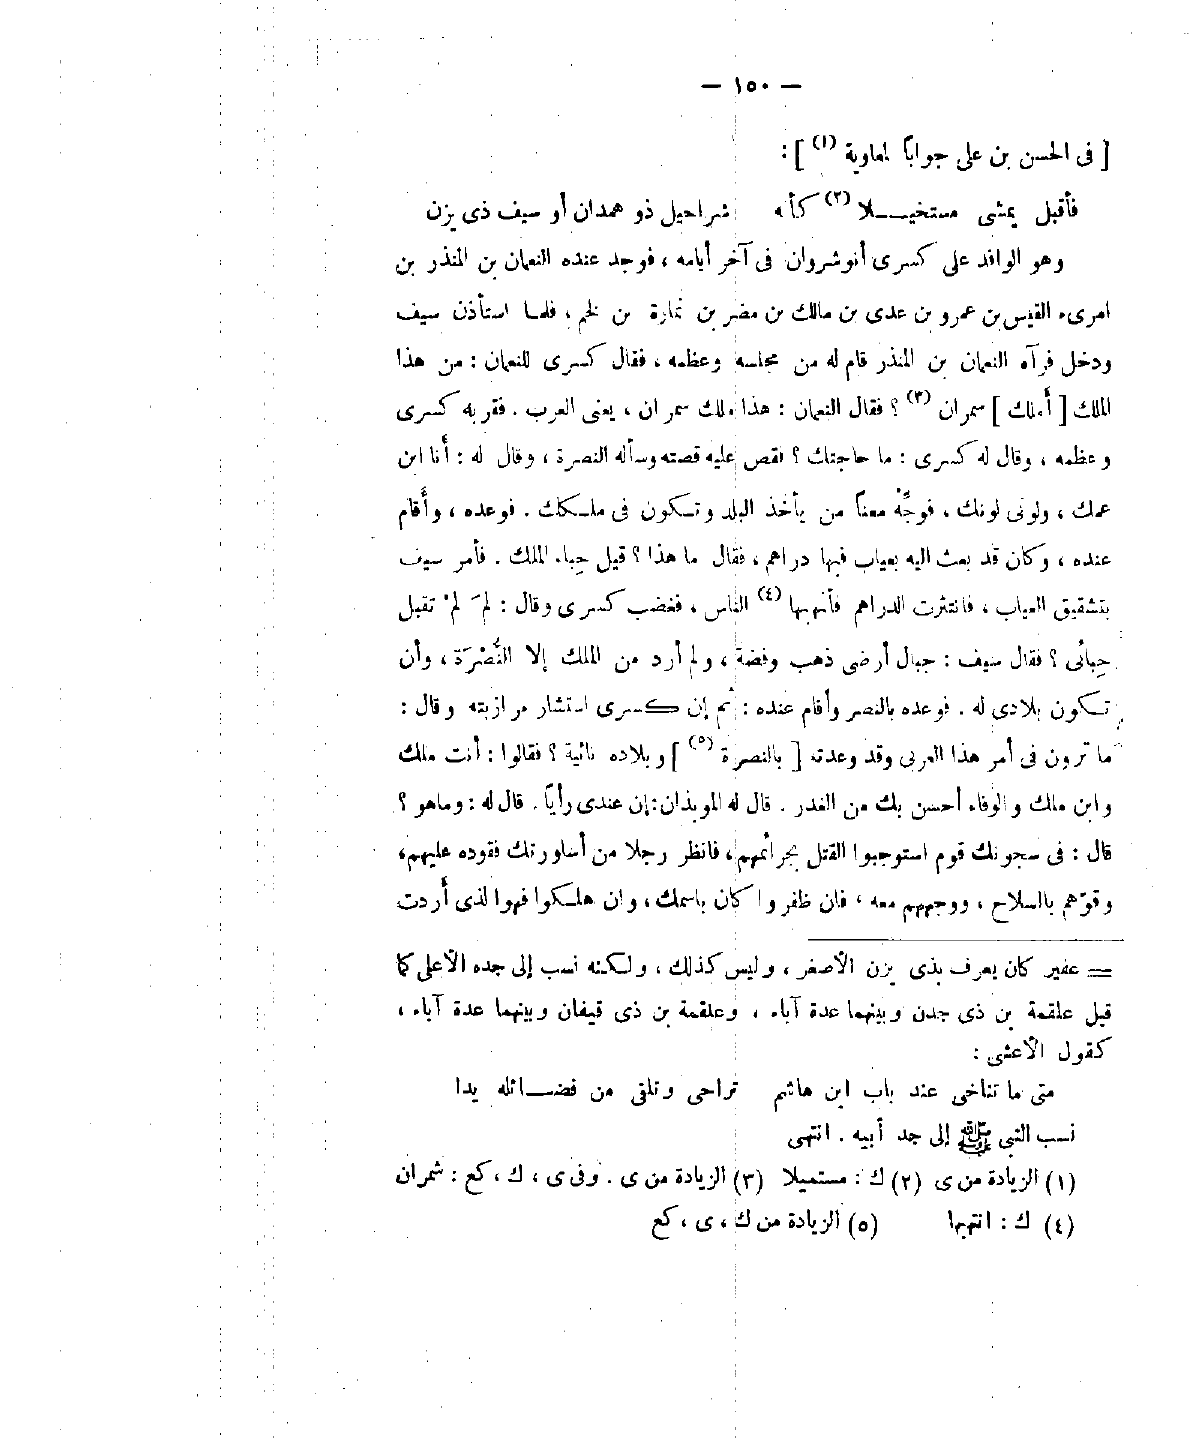 — ١٥٠ —
[ فى الحسن بن على جواباً لمعاوية (١) ] :
فأقبل يمشى مستخيـــلا (٢) كأنه شراحيل ذو همدان أو سيف ذى يزن
وهو الوافد على كسرى أنوشروان فى آخر أيامه ، فوجد عنده النعمان بن المنذر بن
امرىء القيس بن عمرو بن عدى بن مالك بن مضر بن نمارة بن لخم ، فلمـا استأذن سيف
ودخل فرآه النعمان بن المنذر قام له من مجلسه وعظمه ، فقال كسرى للنعمان : من هذا
الملك [ أملك ] سمران (٣) ؟ فقال النعمان : هذا ملك سمران ، يعنى العرب . فقربه كسرى
وعظمه ، وقال له كسرى : ما حاجتك ؟ فقص عليه قصته وسأله النصرة ، وقال له : أنا ابن
عمك ، ولونى لونك ، فوجِّهْ معناً من يأخذ البلد وتـكون فى ملـكك . فوعده ، وأقام
عنده ، وكان قد بعث اليه بعياب فيها دراهم ، فقال ما هذا ؟ قيل حِباء الملك . فأمر سيف
بتشقيق العياب ، فانتثرت الدراهم فأنهبها (٤) الناس ، فغضب كسرى وقال : لمَ لمْ تقبل
حِبائى ؟ فقال سيف : جبال أرضى ذهب وفضة ، ولم أرد من الملك إلا النُّصْرَة ، وأن
تـكون بلادى له . فوعده بالنصر وأقام عنده : ثم إن كسرى استشار مرازبته وقال :
ما ترون فى أمر هذا العربى وقد وعدته [ بالنصرة (٥) ] وبلاده نائية ؟ فقالوا : أنت ملك
وابن ملك والوفاء أحسن بك من الغدر . قال له الموبذان : إن عندى رأياً . قال له : وماهو ؟
قال : فى سجونك قوم استوجبوا القتل بجرائمهم ، فانظر رجلا من أساورتك فقوده عليهم ،
وقوّهم بالسلاح ، ووجههم معه ، فان ظفروا كان باسمك ، وان هلـكوا فهوا لذى أردت
= عفير كان يعرف بذى يزن الأصغر ، وليس كذلك ، ولـكنه نسب إلى جده الأعلى كما
قيل علقمة بن ذى جدن وبينهما عدة آباء ، وعلقمة بن ذى قيفان وبينهما عدة آباء ،
كقول الأعشى :
متى ما تناخى عند باب ابن هاشم تراحى وتلقى من فضــائله يدا
نسب النبى ﷺ إلى جد أبيه . انتهى
(١) الزيادة من ى (٢) ك : مستميلا (٣) الزيادة من ى . وفى ى ، ك ، كع : شمران
(٤) ك : انتهبها (٥) الزيادة من ك ، ى ، كع